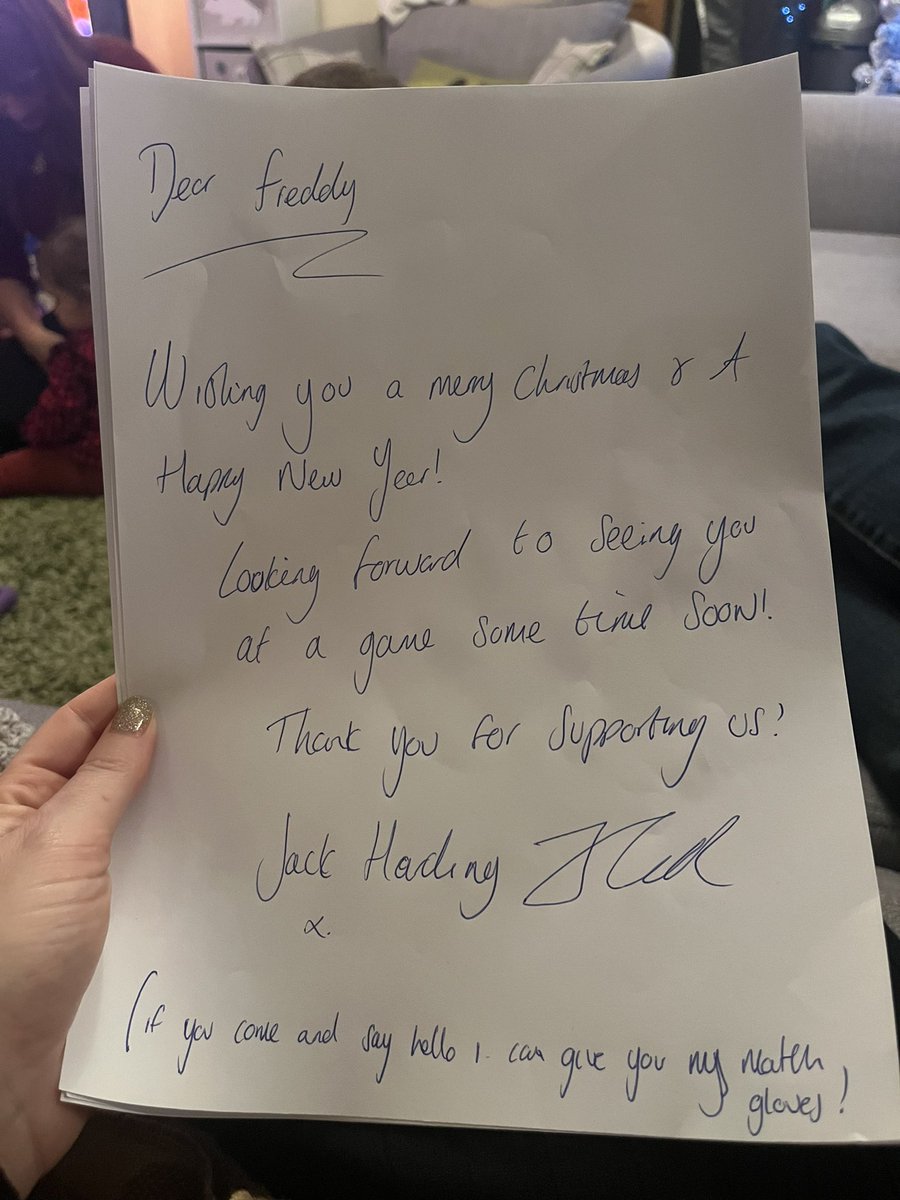 Dear Freddy
Wishing you a merry Christmas & A
Happy New Year!
Looking forward to seeing you
at a game some time soon!
Thank you for supporting us!
Jack Harding
x.
(if you come and say hello I can give you my match
gloves!